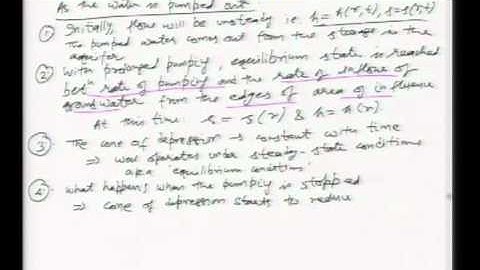 As the water is pumped out
① Initially, flow will be unsteady i.e. h = h(r,t), s = s(r,t)
The pumped water comes out from the storage in the
aquifer
② With prolonged pumping, equilibrium state is reached
betⁿ rate of pumping and the rate of inflow of
groundwater from the edges of area of influence
At this time: s = s(r) & h = h(r).
③ The cone of depression is constant with time
⇒ well operates under steady-state conditions
a.k.a equilibrium conditions.
④ What happens when the pumping is stopped
⇒ cone of depression starts to reduce